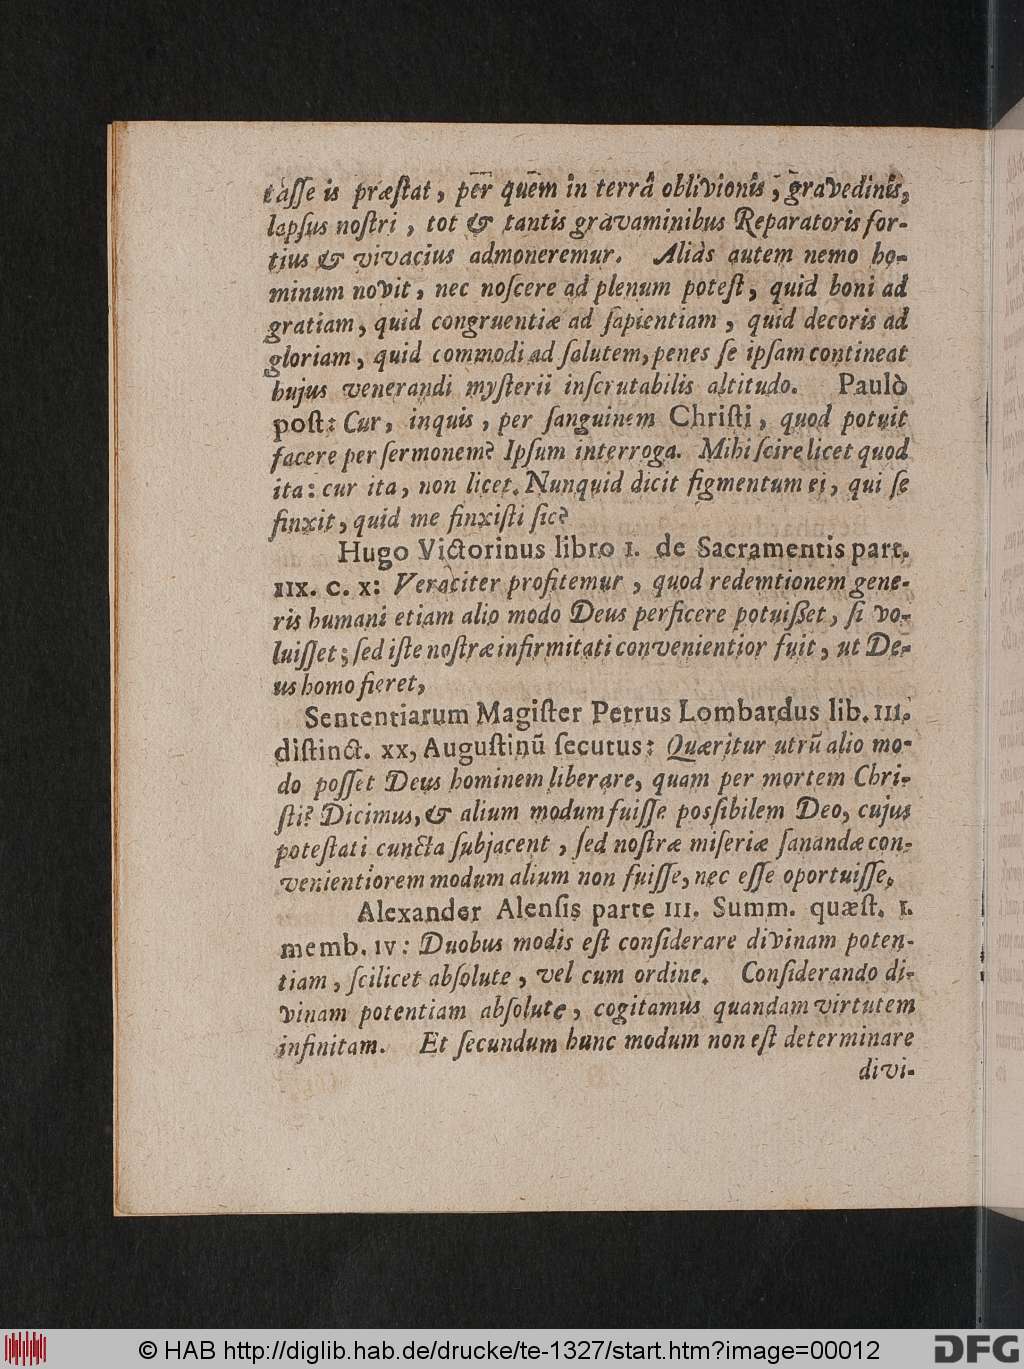 tasse is præstat, per quem in terrâ oblivionis, gravedinis,
lapsus nostri, tot & tantis gravaminibus Reparatoris for-
tius & vivacius admoneremur. Aliàs autem nemo ho-
minum novit, nec noscere ad plenum potest, quid boni ad
gratiam, quid congruentiæ ad sapientiam, quid decoris ad
gloriam, quid commodi ad salutem, penes se ipsam contineat
hujus venerandi mysterii inscrutabilis altitudo. Paulò
post: Cur, inquis, per sanguinem Christi, quod potuit
facere per sermonem? Ipsum interroga. Mihi scire licet quod
ita: cur ita, non licet. Nunquid dicit figmentum ei, qui se
finxit, quid me finxisti sic?
Hugo Victorinus libro I. de Sacramentis part.
IIX. C. X: Veraciter profitemur, quod redemtionem gene-
ris humani etiam alio modo Deus perficere potuisset, si vo-
luisset; sed iste nostræ infirmitati convenientior fuit, ut De-
us homo fieret,
Sententiarum Magister Petrus Lombardus lib. III.
distinct. XX, Augustinū secutus: Quæritur utrū alio mo-
do posset Deus hominem liberare, quam per mortem Chri-
sti? Dicimus, & alium modum fuisse possibilem Deo, cujus
potestati cuncta subjacent, sed nostræ miseriæ sanandæ con-
venientiorem modum alium non fuisse, nec esse oportuisse.
Alexander Alensis parte III. Summ. quæst. I.
memb. IV: Duobus modis est considerare divinam poten-
tiam, scilicet absolute, vel cum ordine. Considerando di-
vinam potentiam absolute, cogitamus quandam virtutem
infinitam. Et secundum hunc modum non est determinare
divi-
© HAB http://diglib.hab.de/drucke/te-1327/start.htm?image=00012
DFG